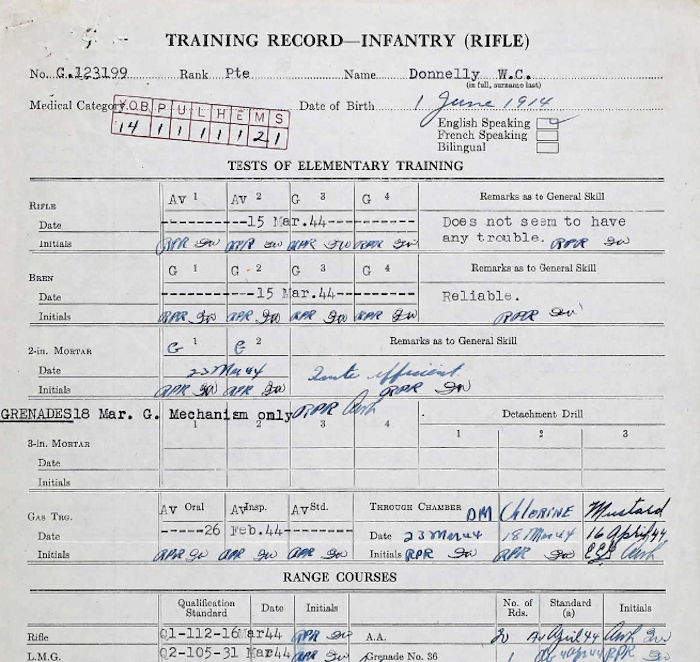 TRAINING RECORD—INFANTRY (RIFLE)
No. G.123199 Rank Pte Name Donnelly W.C.
(in full, surname last)
Medical Category Y.O.B P U L H E M S Date of Birth 1 June 1914
14 1 1 1 1 1 2 1
English Speaking
French Speaking
Bilingual
TESTS OF ELEMENTARY TRAINING
RIFLE Av 1 Av 2 G 3 G 4 Remarks as to General Skill
Date 15 Mar.44 Does not seem to have
Initials RPR RPR RPR RPR any trouble. RPR
BREN G 1 G 2 G 3 G 4 Remarks as to General Skill
Date 15 Mar.44 Reliable.
Initials RPR RPR RPR RPR RPR
2-in. MORTAR G 1 G 2 Remarks as to General Skill
Date 23 Mar 44 Quite efficient
Initials RPR RPR RPR
GRENADES 18 Mar. G. Mechanism only RPR
3-in. MORTAR 1 2 3 4 Detachment Drill
1 2 3
Date
Initials
GAS TRG. Av Oral Av Insp. Av Std. THROUGH CHAMBER DM Chlorine Mustard
Date 26 Feb.44 Date 23 Mar 44 18 Mar 44 16 April/44
Initials RPR RPR RPR Initials RPR RPR
RANGE COURSES
Qualification Standard Date Initials No. of Rds. Standard (a) Initials
Rifle Q1-112-16 Mar44 RPR A.A. 20 April 44 RPR
L.M.G. Q2-105-31 Mar44 RPR Grenade No. 36 1 RPR